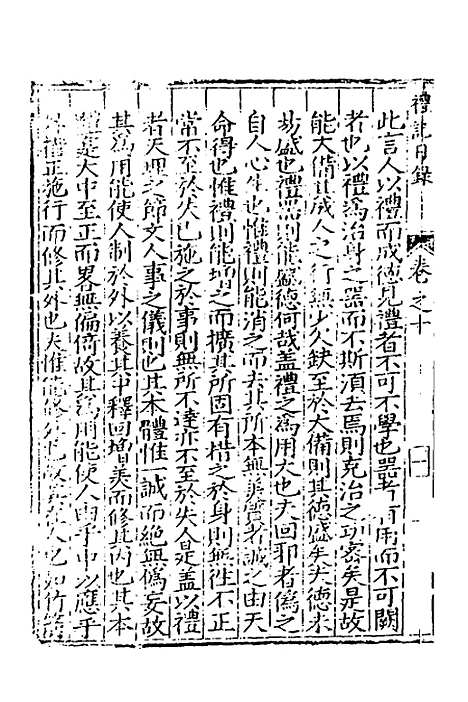 禮記日錄 卷之十 一
此言人以禮而成德見禮者不可不學也器者有用而不可闕
者也以禮為治身之器而不斯須去焉則克治之功密矣是故
能大備其成人之行無少欠缺至於大備則其德盛矣夫德未
易盛也禮器則能盛德何哉盖禮之為用大也夫回邪者偽之
自人心生也惟禮則能消之而去其所本無美質者誠之由天
命得也惟禮則能增之而擴其所固有措之於身則無徃不正
常不至於失己施之於事則無所不達亦不至於失人是盖以禮
者天理之節文人事之儀則也其本體惟一誠而絕無偽妄故
其為用能使人制於外以養其中釋回增美而修其內也其本
體是大中至正而畧無偏倚故其為用能使人由乎中以應乎
外措正施行而修其外也夫惟能
人也如竹箭